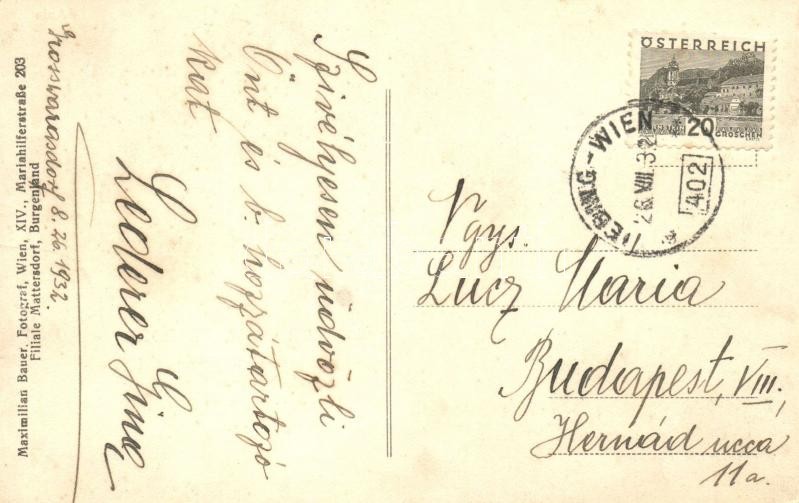 Maximilian Bauer, Fotograf, Wien, XIV., Mariahilferstraße 203
Filiale Mattersdorf, Burgenland
Grosswarasdorf 8. 26. 1932.
Szivélyesen üdvözli
Önt és b. hozzátartozó
kat
Lederer
ÖSTERREICH
20
GROSCHEN
-WIEN
26 VIII 32
402
Ngys.
Lucz Maria
Budapest, VIII.,
Hernád ucca
11a.